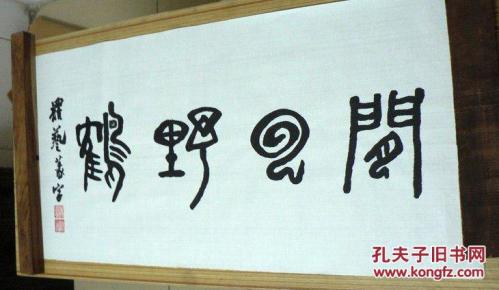 閒云野鶴
藝篆字
孔夫子旧书网
www.kongfz.com